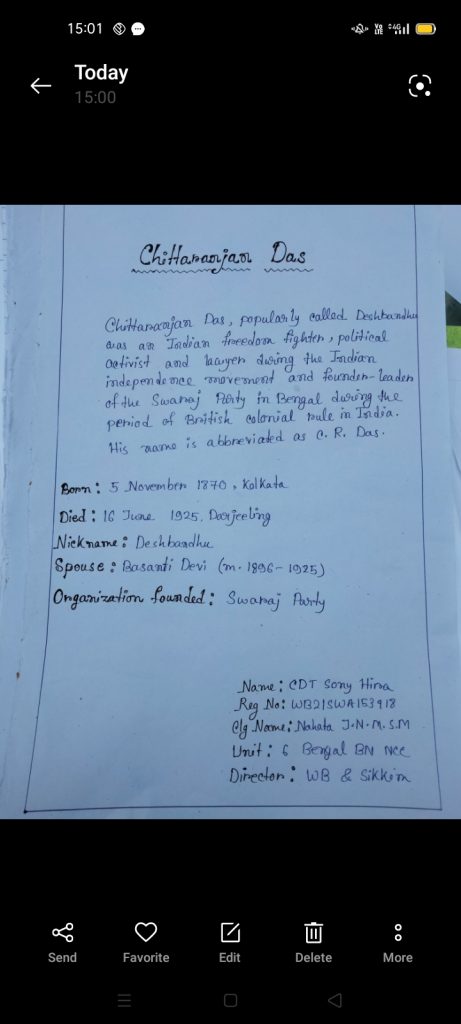 15:01
Today
15:00
Chittaranjan Das
Chittaranjan Das, popularly called Deshbandhu
was an Indian freedom fighter, political
activist and lawyer during the Indian
independence movement and founder-leader
of the Swaraj Party in Bengal during the
period of British colonial rule in India.
His name is abbreviated as C. R. Das.
Born: 5 November 1870, Kolkata
Died: 16 June 1925, Darjeeling
Nickname: Deshbandhu
Spouse: Basanti Devi (m. 1896-1925)
Organization founded: Swaraj Party
Name: CDT Sony Hira
Reg No: WB21SWA153918
Clg Name: Nahata J.N.M.S.M
Unit: 6 Bengal BN NCC
Director: WB & Sikkim
Send Favorite Edit Delete More